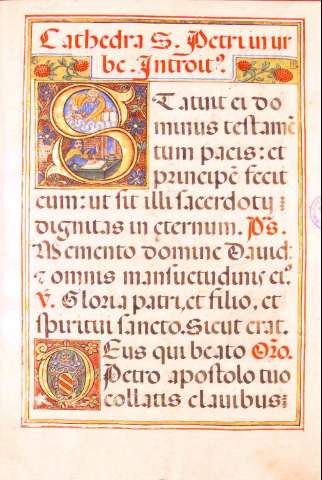 Cathedra S. Petri in ur
be. Introitꝰ.
Statuit ei do
minus testamē
tum pacis: et
principē fecit
eum: ut sit illi sacerdotij
dignitas in eternum. Ps.
Memento domine Dauid:
⁊ omnis mansuetudinis eiꝰ.
V. Gloria patri, et filio, et
spiritui sancto. Sicut erat.
Deus qui beato Oro.
Petro apostolo tuo
collatis clauibus